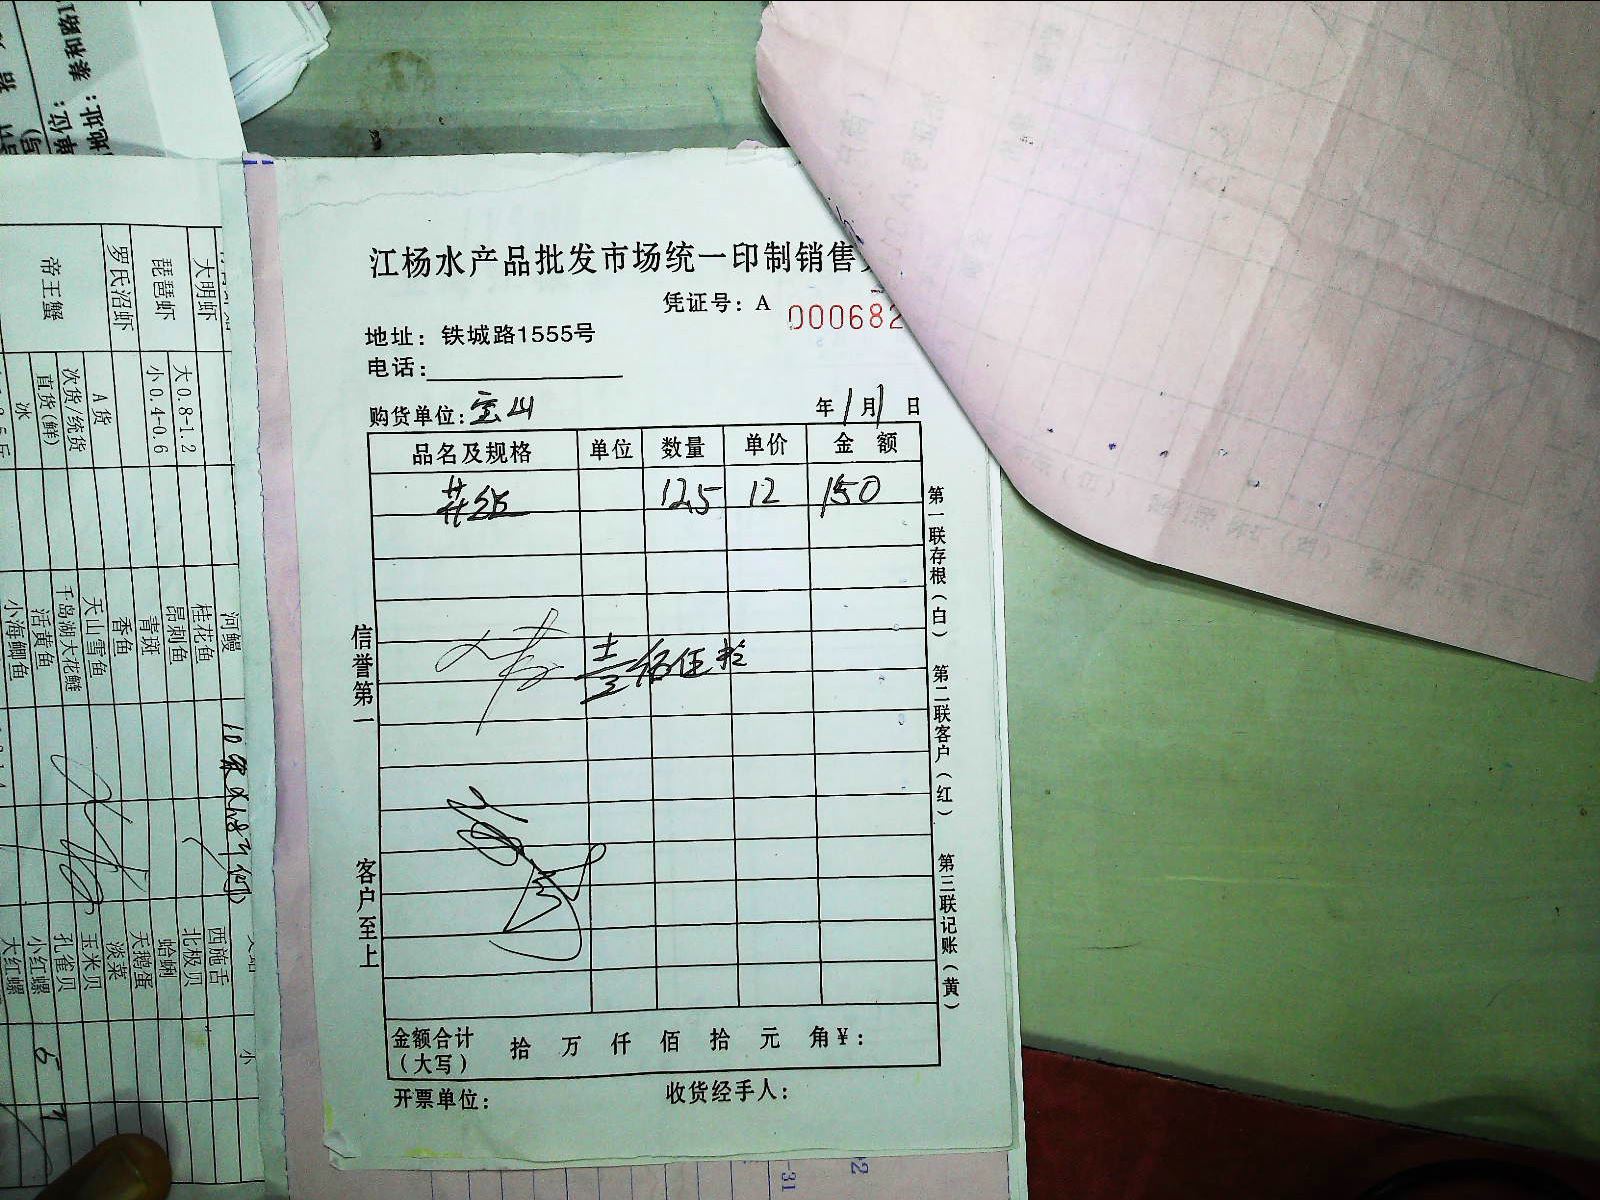 江杨水产品批发市场统一印制销售
凭证号：A 000682
地址：铁城路1555号
电话：
购货单位：宝山 年1月1日
品名及规格 单位 数量 单价 金额
花鲢 12.5 12 150
壹佰伍拾
信誉第一
客户至上
第一联存根（白）
第二联客户（红）
第三联记账（黄）
金额合计（大写） 拾 万 仟 佰 拾 元 角 ¥：
开票单位：
收货经手人：
单位：
地址：泰和路1
大明虾
琵琶虾
罗氏沼虾
帝王蟹
大0.8-1.2
小0.4-0.6
A货
次货/统货
直货(鲜)
冰
河鳗
桂花鱼
昂刺鱼
青斑
香鱼
天山雪鱼
千岛湖大花鲢
活黄鱼
小海鲫鱼
西施舌
北极贝
蛤蜊
天鹅蛋
淡菜
玉米贝
孔雀贝
小红螺
大红螺
小
5